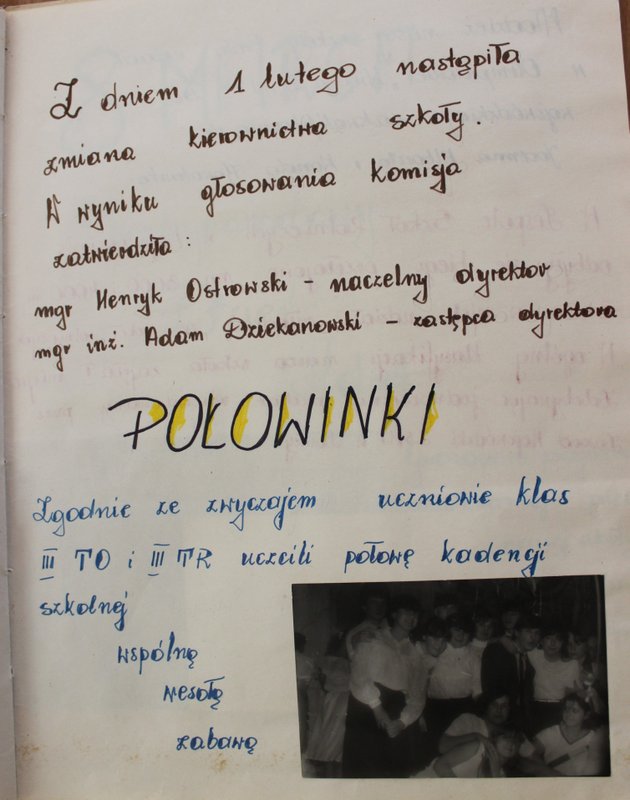 Z dniem 1 lutego nastąpiła
zmiana kierownictwa szkoły.
W wyniku głosowania komisja
zatwierdziła:
mgr Henryk Ostrowski – naczelny dyrektor
mgr inż. Adam Dziekanowski – zastępca dyrektora
POŁOWINKI
Zgodnie ze zwyczajem uczniowie klas
III TO i III TR uczcili połowę kadencji
szkolnej
wspólną
wesołą
zabawą